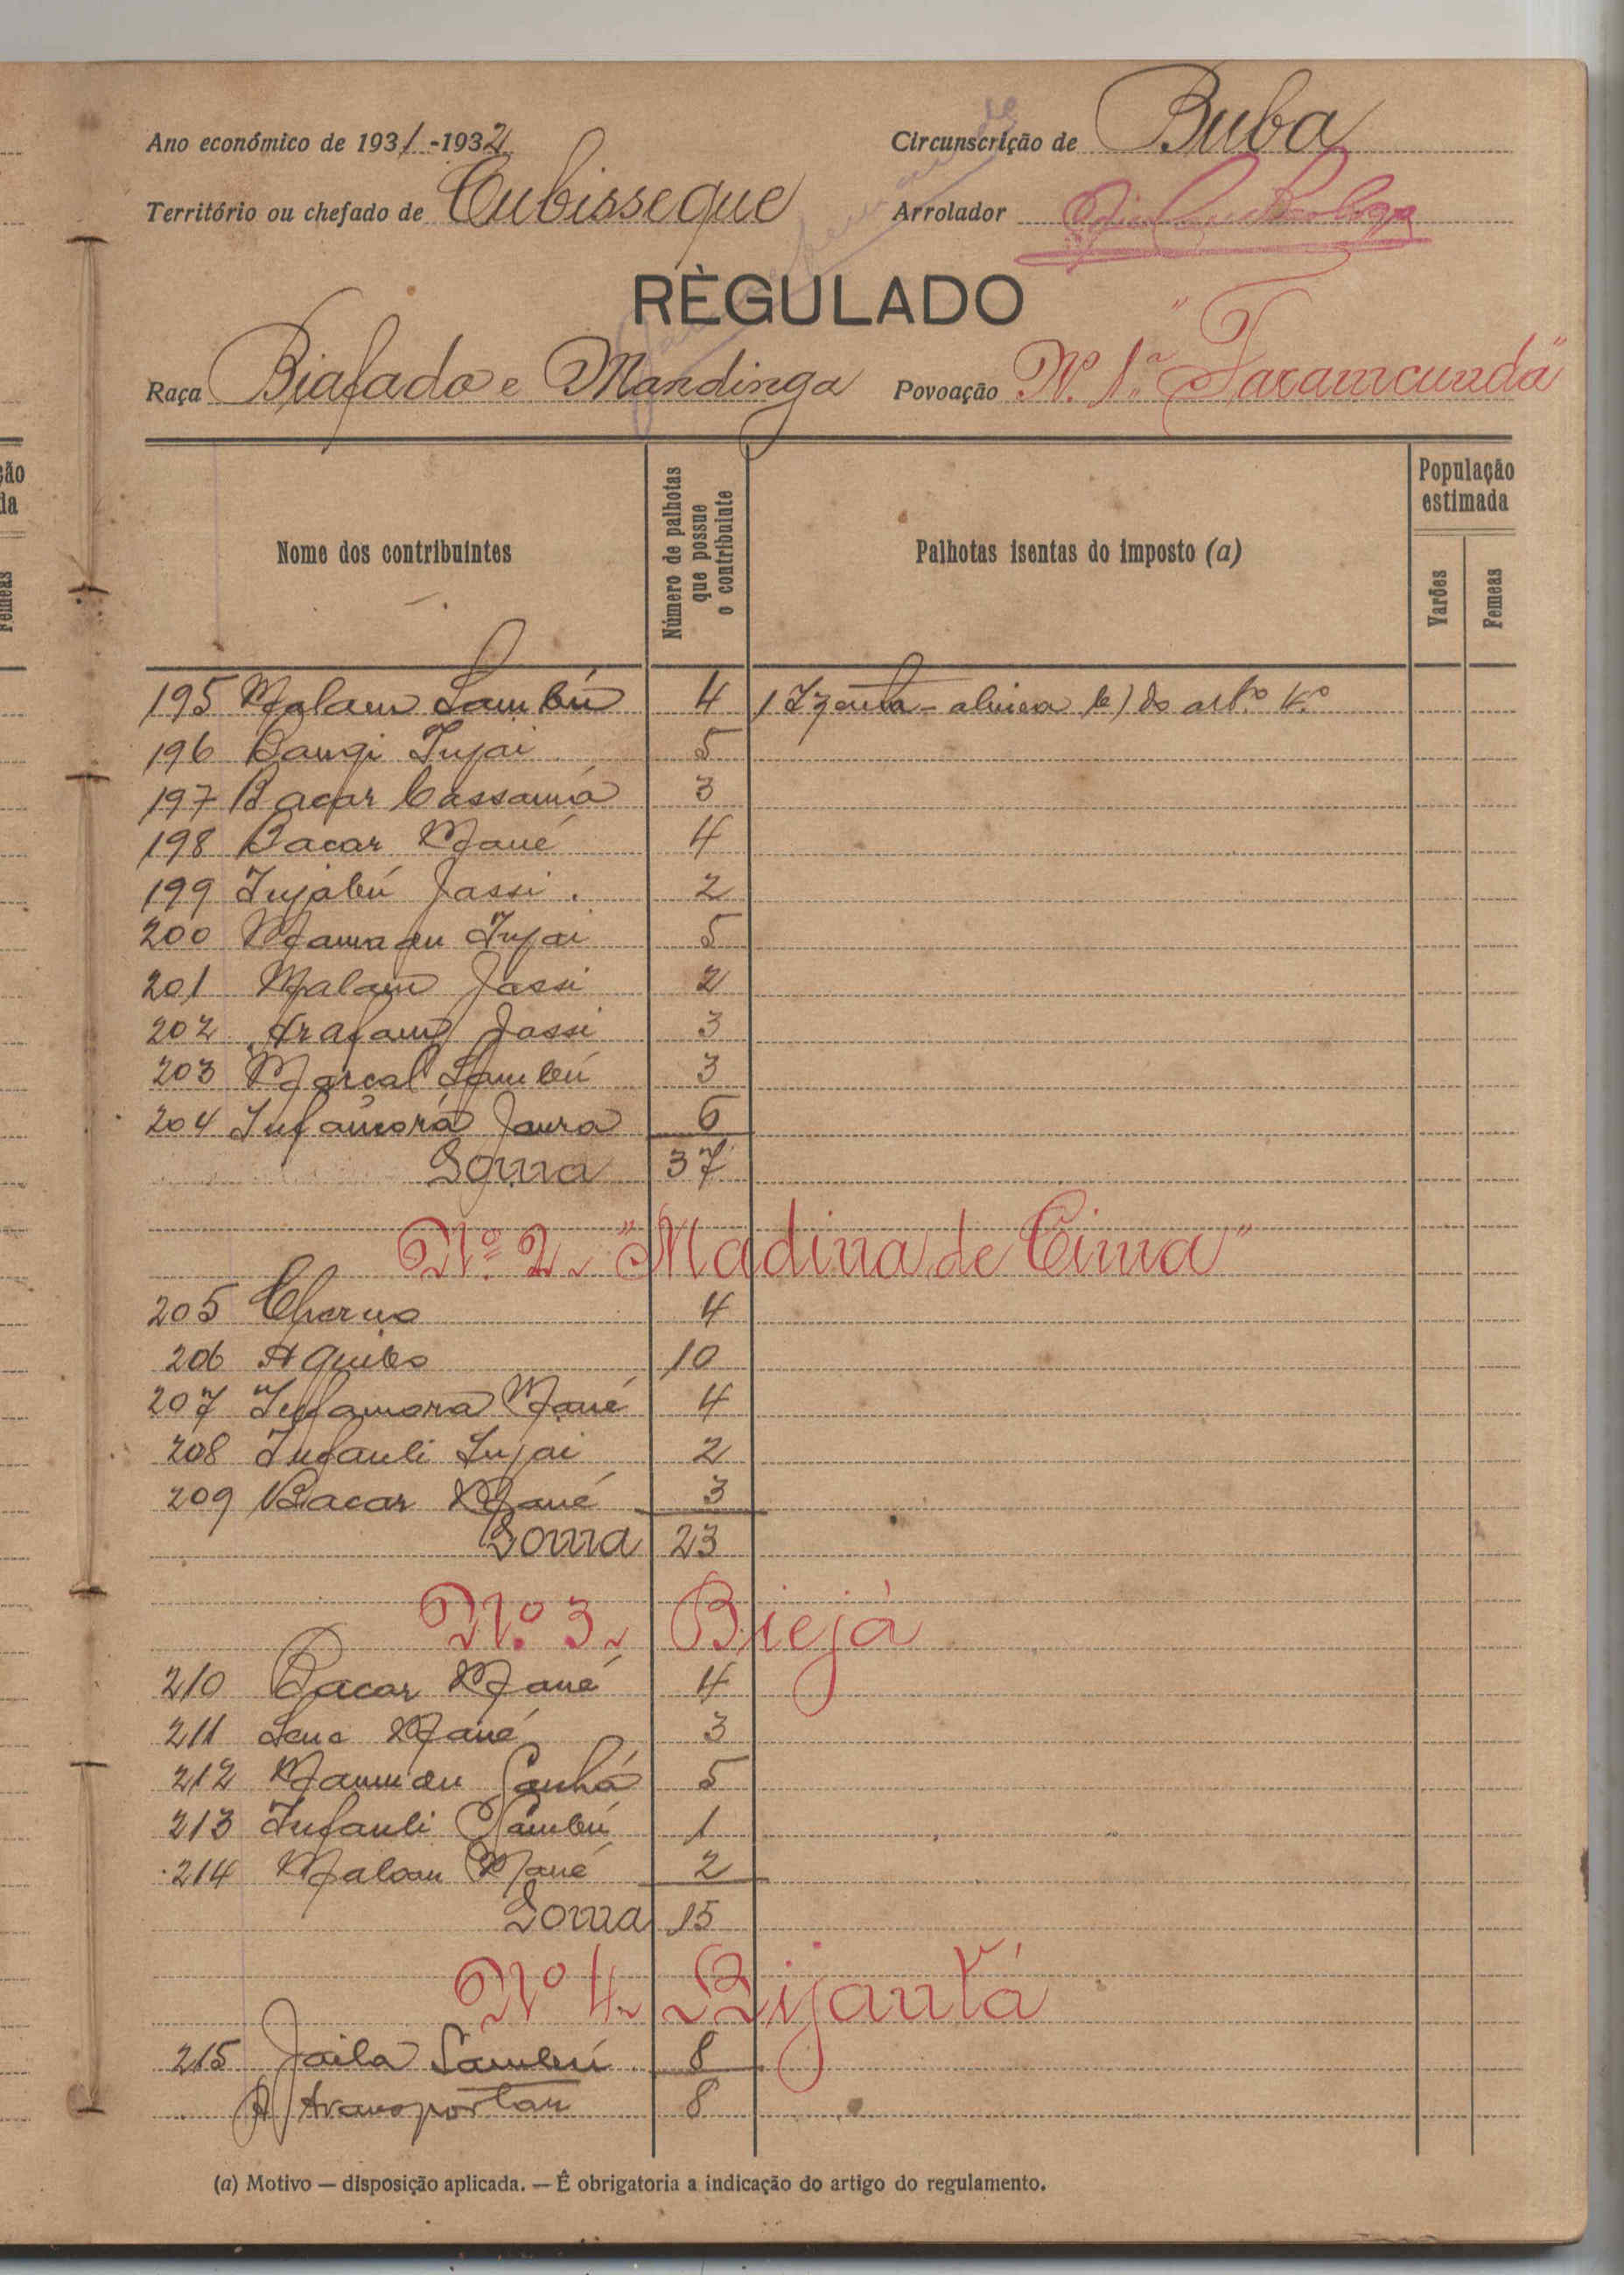 Ano económico de 1931-1932
Circunscrição de Buba
Território ou chefado de Cubisseque
Arrolador
RÈGULADO
Raça Biafado e Mandinga
Povoação N.º 1.º "Faramcunda"
Nome dos contribuintes
Número de palhotas que possue o contribuinte
Palhotas isentas do imposto (a)
População estimada
Varões
Femeas
195 Malam Sambú 4 1 Izenta - alinea b) do artº. 4.º
196 Bangi Injai 5
197 Bacar Cassamá 3
198 Bacar Mané 4
199 Injabú Jassi. 2
200 Mamadu Injai 5
201 Malam Jassi 2
202 Arafam Jassi 3
203 Marcal Sambú 3
204 Infamorá Jaura 6
Soma 37
Nº. 2 "Madina de Cima"
205 Cherno 4
206 Aquiles 10
207 Infamora Mané 4
208 Infanli Injai 2
209 Bacar Mané 3
Soma 23
Nº. 3 Biejá
210 Bacar Mané 4
211 Mané 3
212 Mamudu Sanhá 5
213 Infanli Sambú 1
214 Malam Mané 2
Soma 15
Nº 4 Bijantá
215 Jaila Sambú 8
A transportar 8
(a) Motivo — disposição aplicada. — É obrigatoria a indicação do artigo do regulamento.
ção
da
Femeas